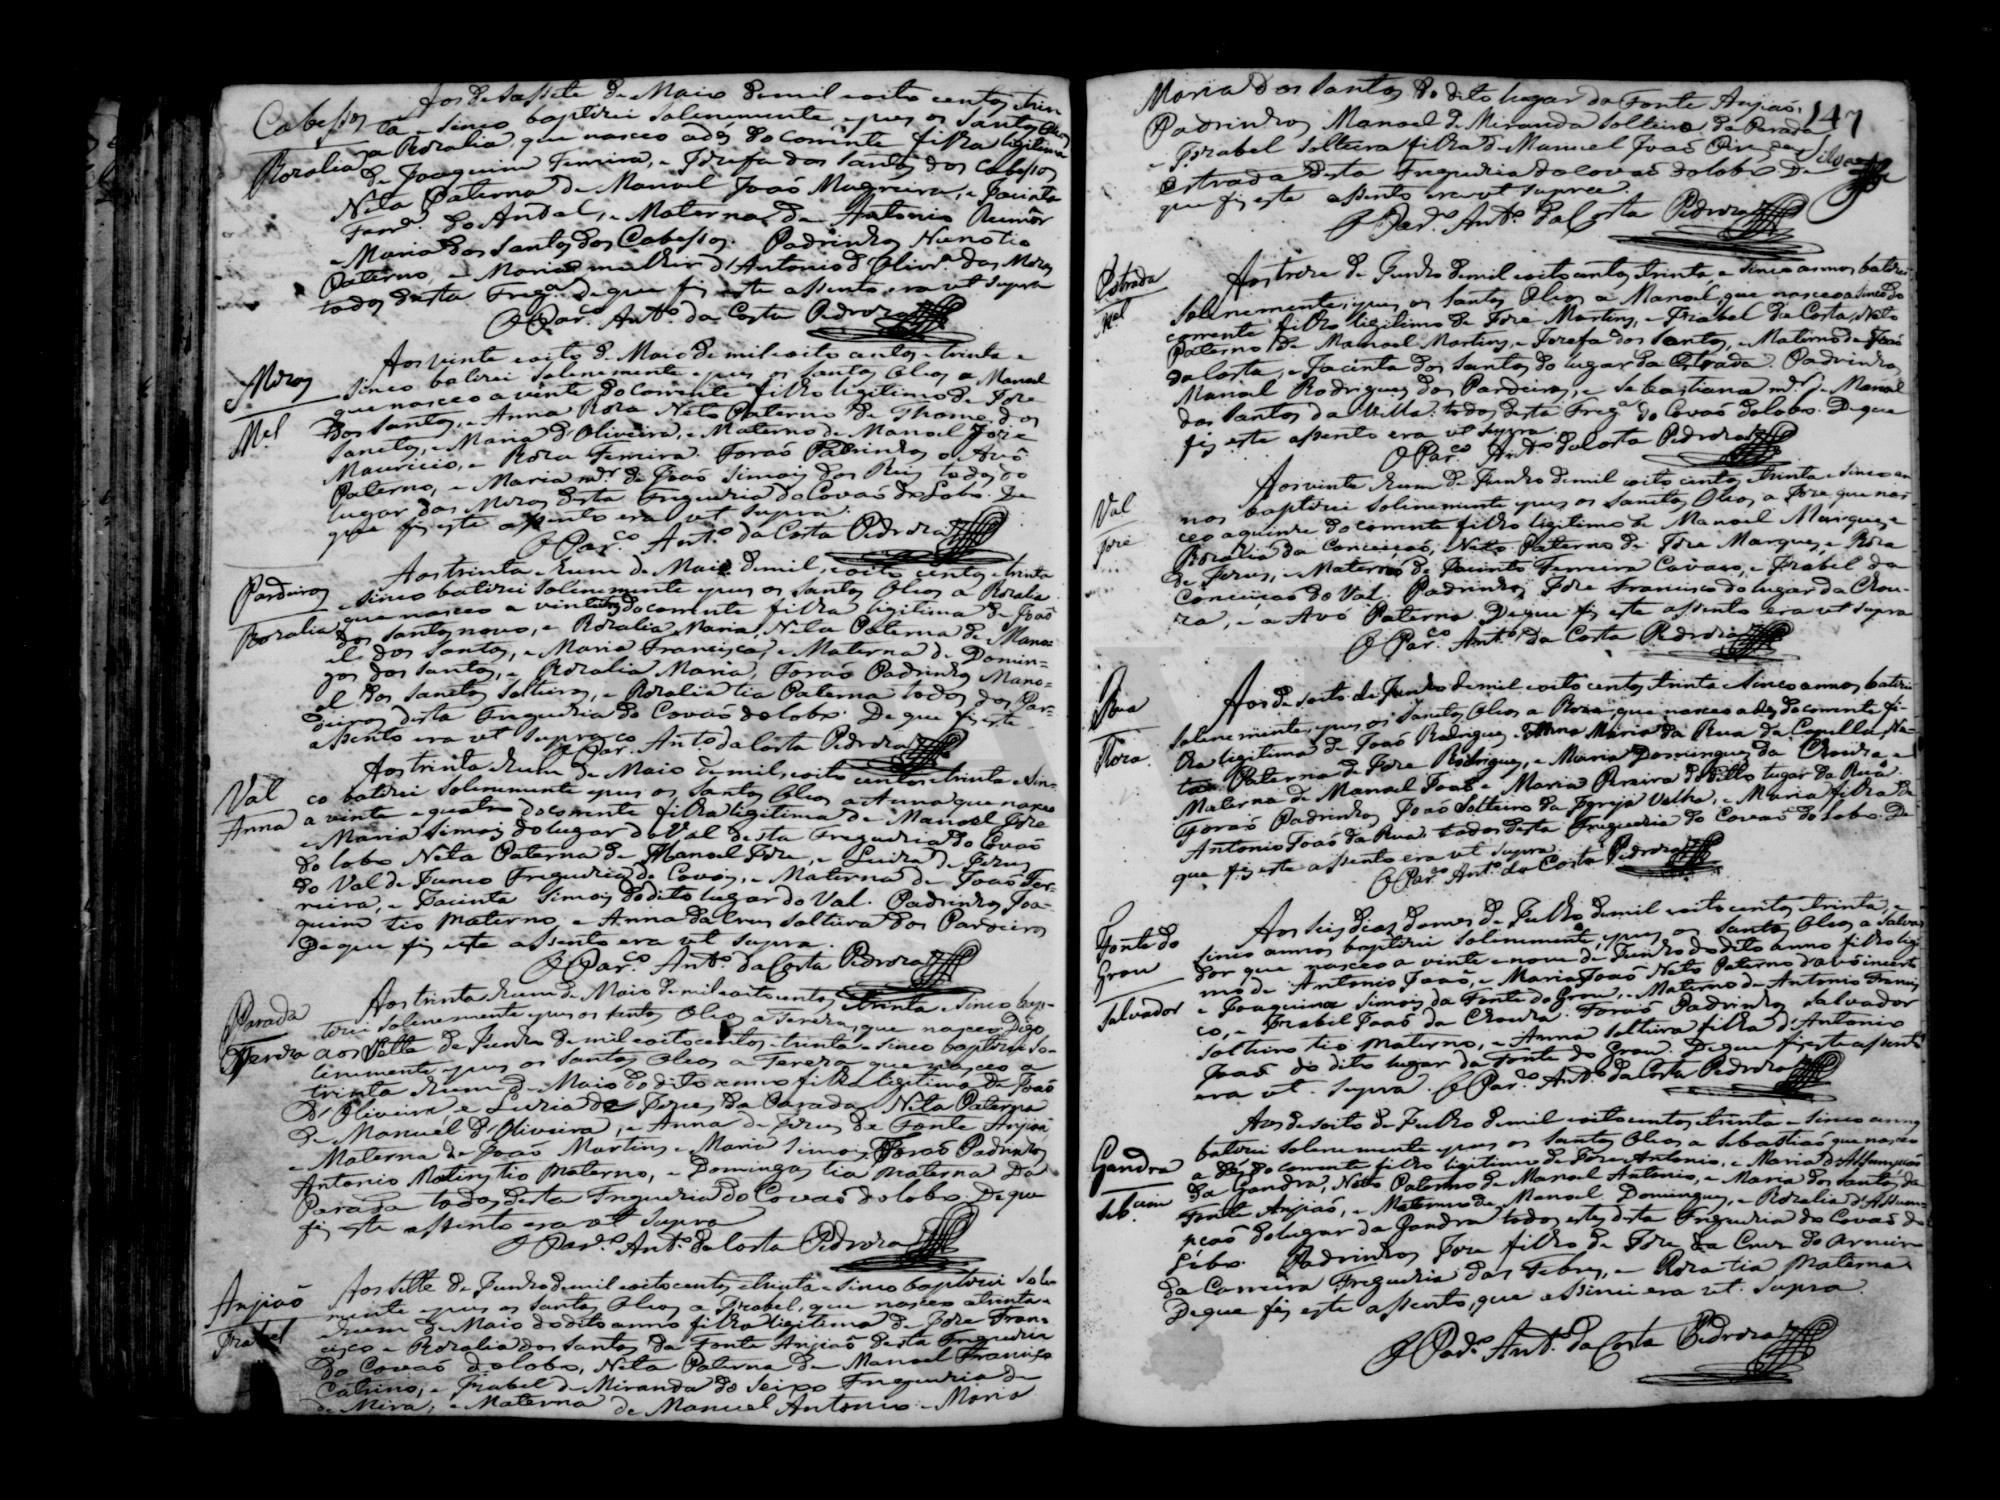 Cabessos
Rozalia
Aos desassete de Maio de mil e oito centos e trin
ta e sinco baptizei solenemente e pus os Santos Oleos
a Rozalia, que nasceo a dez do corrente filha ligitima
de Joaquim Ferreira, e Jozefa dos Santos dos Cabessos
Neta Paterna de Manoel Joaõ Magreira, e Jacinta
do Andal, e Materna de Antonio
e Maria dos Santos dos Cabessos. Padrinhos tio
Paterno, e Maria mulher d'Antonio d'Olivrª das Moros
todos desta Fregª. De que fis este assento era ut supra
O Parº. Antº. da Costa Pedroza
Moros
Mel
Aos vinte e oito de Maio de mil e oito centos e trinta e
sinco batizei solenemente e pus os santos Oleos a Manoel
que nasceo a vinte do corrente filho ligitimo de Joze
dos Santos, e Anna Roza Neto Paterno de Thome dos
Santos, e Maria d'Oliveira, e Materno de Manoel Joze
Mauricio, e Roza Ferreira. Foraõ Padrinhos o Avô
Paterno, e Maria mr. de Joaõ Simois dos todos do
lugar das Moros desta Freguezia do Covaõ do Lobo. De
que fis este assento era ut supra.
O Parco. Antº. da Costa Pedroza
Pardeiros
Rozalia
Aos trinta e hum de Maio de mil e oito centos e trinta
e sinco batizei solenemente e pus os santos Oleos a Rozalia
que nasceo a vinte do corrente filha ligitima de Joaõ
dos Santos novo, e Rozalia Maria, Neta Paterna de Mano-
el dos Santos, e Maria Francisca, e Materna de Domin-
gos dos Santos, e Rozalia Maria, Foraõ Padrinhos Mano-
el dos Santos Solteiro, e Rozalia tia Paterna todos dos Par-
deiros desta Freguezia do Covaõ do Lobo. De que fis este
assento era ut supra
O Par. Antº da Costa Pedroza
Val
Anna
Aos trinta e hum de Maio de mil e oito centos e trinta e sin-
co batizei solenemente e pus os santos Oleos a Anna que nasceo
a vinte e quatro do corrente filha ligitima de Manoel Joze
e Maria Simois do lugar do Val desta Freguezia do Covaõ
do Lobo Neta Paterna de Manoel Joze, e Luiza de Jezus
do Val de Freguezia de e Materna de Joaõ Fer-
reira, e Jacinta Simois do dito lugar do Val. Padrinhos Joa-
quim tio Materno e Anna da Cruz solteira dos Pardeiros
De que fis este assento era ut supra.
O Parco. Antº. da Costa Pedroza
Parada
Tereza
Aos trinta e hum de Maio de mil e oito centos e trinta e sinco bap-
tizei solenemente e pus os santos Oleos a Tereza, que nasceo Digo
aos Sette de Junho de mil e oito centos e trinta e sinco baptizei so-
lenemente e pus os santos Oleos a Tereza que nasceo a
trinta e hum de Maio do dito anno filha ligitima de Joaõ
d'Oliveira e Luzia de Jezus da Parada Neta Paterna
de Manuel d'Oliveira, e Anna de Jezus da Fonte Anjiaõ
e Materna de Joaõ Martins e Maria Simois Foraõ Padrinhos
Antonio Matins tio Materno, e Domingas tia Materna da
Parada todos desta Freguezia do Covaõ do Lobo. De que
fis este assento era ut supra
O Parº. Antº. da Costa Pedroza
Anjiaõ
Izabel
Aos Sette de Junho de mil e oito centos e trinta e sinco baptizei sole
mente e pus os santos Oleos a Izabel, que nasceo a trinta e
hum de Maio do dito anno filha ligitima de Joze Fran-
cisco e Rozalia dos Santos da Fonte Anjiaõ desta Freguezia
do Covaõ do Lobo, Neta Paterna de Manoel Francisco
Catrino, e Izabel de Miranda do Seixo Freguezia de
de Mira, e Materna de Manuel Antonio e Maria
147
Maria dos Santos do dito lugar da Fonte Anjiaõ.
Padrinhos Manoel de Miranda Solteiro da Parada
e Izabel Solteira filha de Manuel Joaõ da Silva
Estrada desta Freguezia do Covaõ do Lobo De
que fis este assento era ut supra.
O Par. Antº. da Costa Pedroza
Estrada
Mel
Aos treze de Junho de mil e oito centos e trinta, e sinco annos batizei
solenemente, e pus os santos Oleos a Manoel, que nasceo a sinco do
corrente filho ligitimo de Joze Martins, e Izabel da Costa, Neto
Paterno de Manoel Martins, e Jozefa dos Santos, e Materno de Joaõ
da Costa, e Jacinta dos Santos do lugar da Estrada. Padrinhos
Manoel Rodrigues dos Pardeiros, e Sebastiana mr. de Manoel
dos Santos da Villa: todos desta Fregª do Covaõ do Lobo. De que
fis este assento era ut supra.
O Parco. Antº da Costa Pedroza
Val
Joze
Aos vinte e hum de Junho de mil e oito centos e trinta e sinco an
nos baptizei solenemente e pus os santos Oleos a Joze, que nas
ceo a quinze do corrente filho ligitimo de Manoel Marques, e
Rozalia da Conceicaõ, Neto Paterno de Joze Marques e Roza
de Jezus, e Materno de Jacinto Ferreira Cavaco, e Izabel da
Conceiçaõ do Val. Padrinhos Joze Francisco do lugar da Chou-
ra, e a Avó Paterna. De que fis este assento era ut supra
O Parco. Antº. da Costa Pedroza
Rua
Roza.
Aos de soito de Junho de mil e oito centos e trinta e sinco annos batizei
solenemente, e pus os Santos Oleos a Roza que nasceo a dez do corrente fi-
lha ligitima de Joaõ Rodrigues e Anna Maria da Rua da Capella Ne-
ta Paterna de Joze Rodrigues, e Maria Domingues da Choira, e
Materna de Manoel Joaõ e Maria Pereira do dito lugar da Rua.
Foraõ Padrinhos Joaõ Solteiro da Igreja Velha, e Maria filha de
Antonio Joaõ da Rua: todos desta Freguezia do Covaõ do Lobo. De
que fis este assento era ut supra.
O Parº. Antº. da Costa Pedroza
Fonte do
Grou
Salvador
Aos seis dias do mes de Julho de mil e oito centos e trinta, e
sinco annos baptizei solenemente, e pus os Santos Oleos a Salva-
dor que nasceo a vinte e nove de Junho do dito anno filho ligi
mo de Antonio Joaõ, e Maria Joaõ Neto Paterno d'avô incerto
e Joaquina Simois da Fonte do Grou, e Materno de Antonio Francis
co, e Izabel Joaõ da Choura. Foraõ Padrinhos Salvador
Solteiro tio Materno, e Anna solteira filha d'Antonio
Joaõ do dito lugar da Fonte do Grou. De que fis este assento
era ut supra. O Parº. Antº. da Costa Pedroza
Gandra
Aos desoito de Julho de mil e oito centos e trinta e sinco annos
batizei solenemente e pus os Santos Oleos a Sebastiaõ que nasceo
a dez do corrente filho ligitimo de Joze Antonio, e Maria d'Assumpçaõ
da Gandra, Neto Paterno de Manoel Antonio, e Maria dos Santos da
Fonte Anjiaõ, e Materno de Manoel Domingues, e Rozalia d'Assum-
pçaõ do lugar da Gandra todos estes desta Freguezia do Covaõ do
Lobo. Padrinhos Joze filho de Joze da Cruz do Arneiro
da Freguezia das Febres, e Roza tia Materna
De que fis este assento, que assinei era ut supra.
O Parº. Antº. da Costa Pedroza